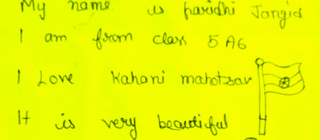 My name is paridhi Jangid
I am from class 5 A6
I Love Kahani mahotsav
It is very beautiful